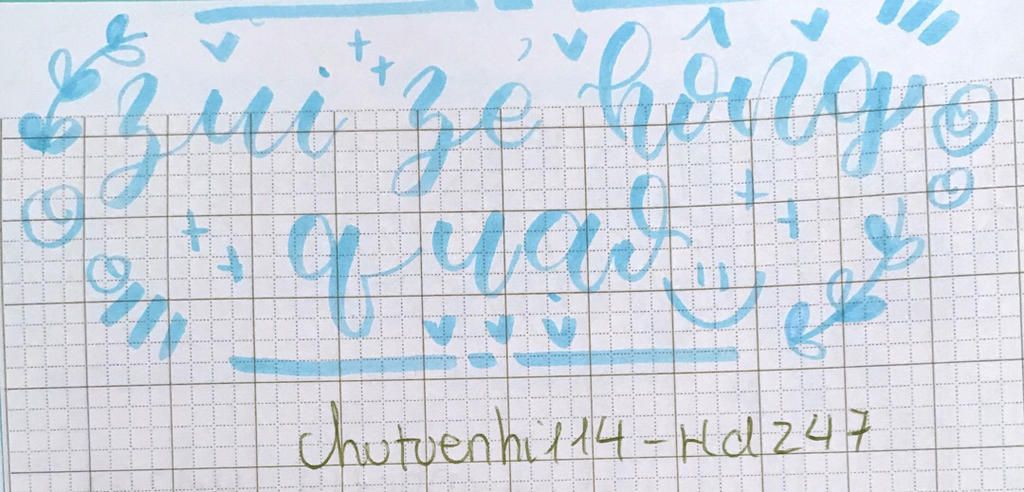 zui zẻ hông
quạo
chutuenhi114-Hd247